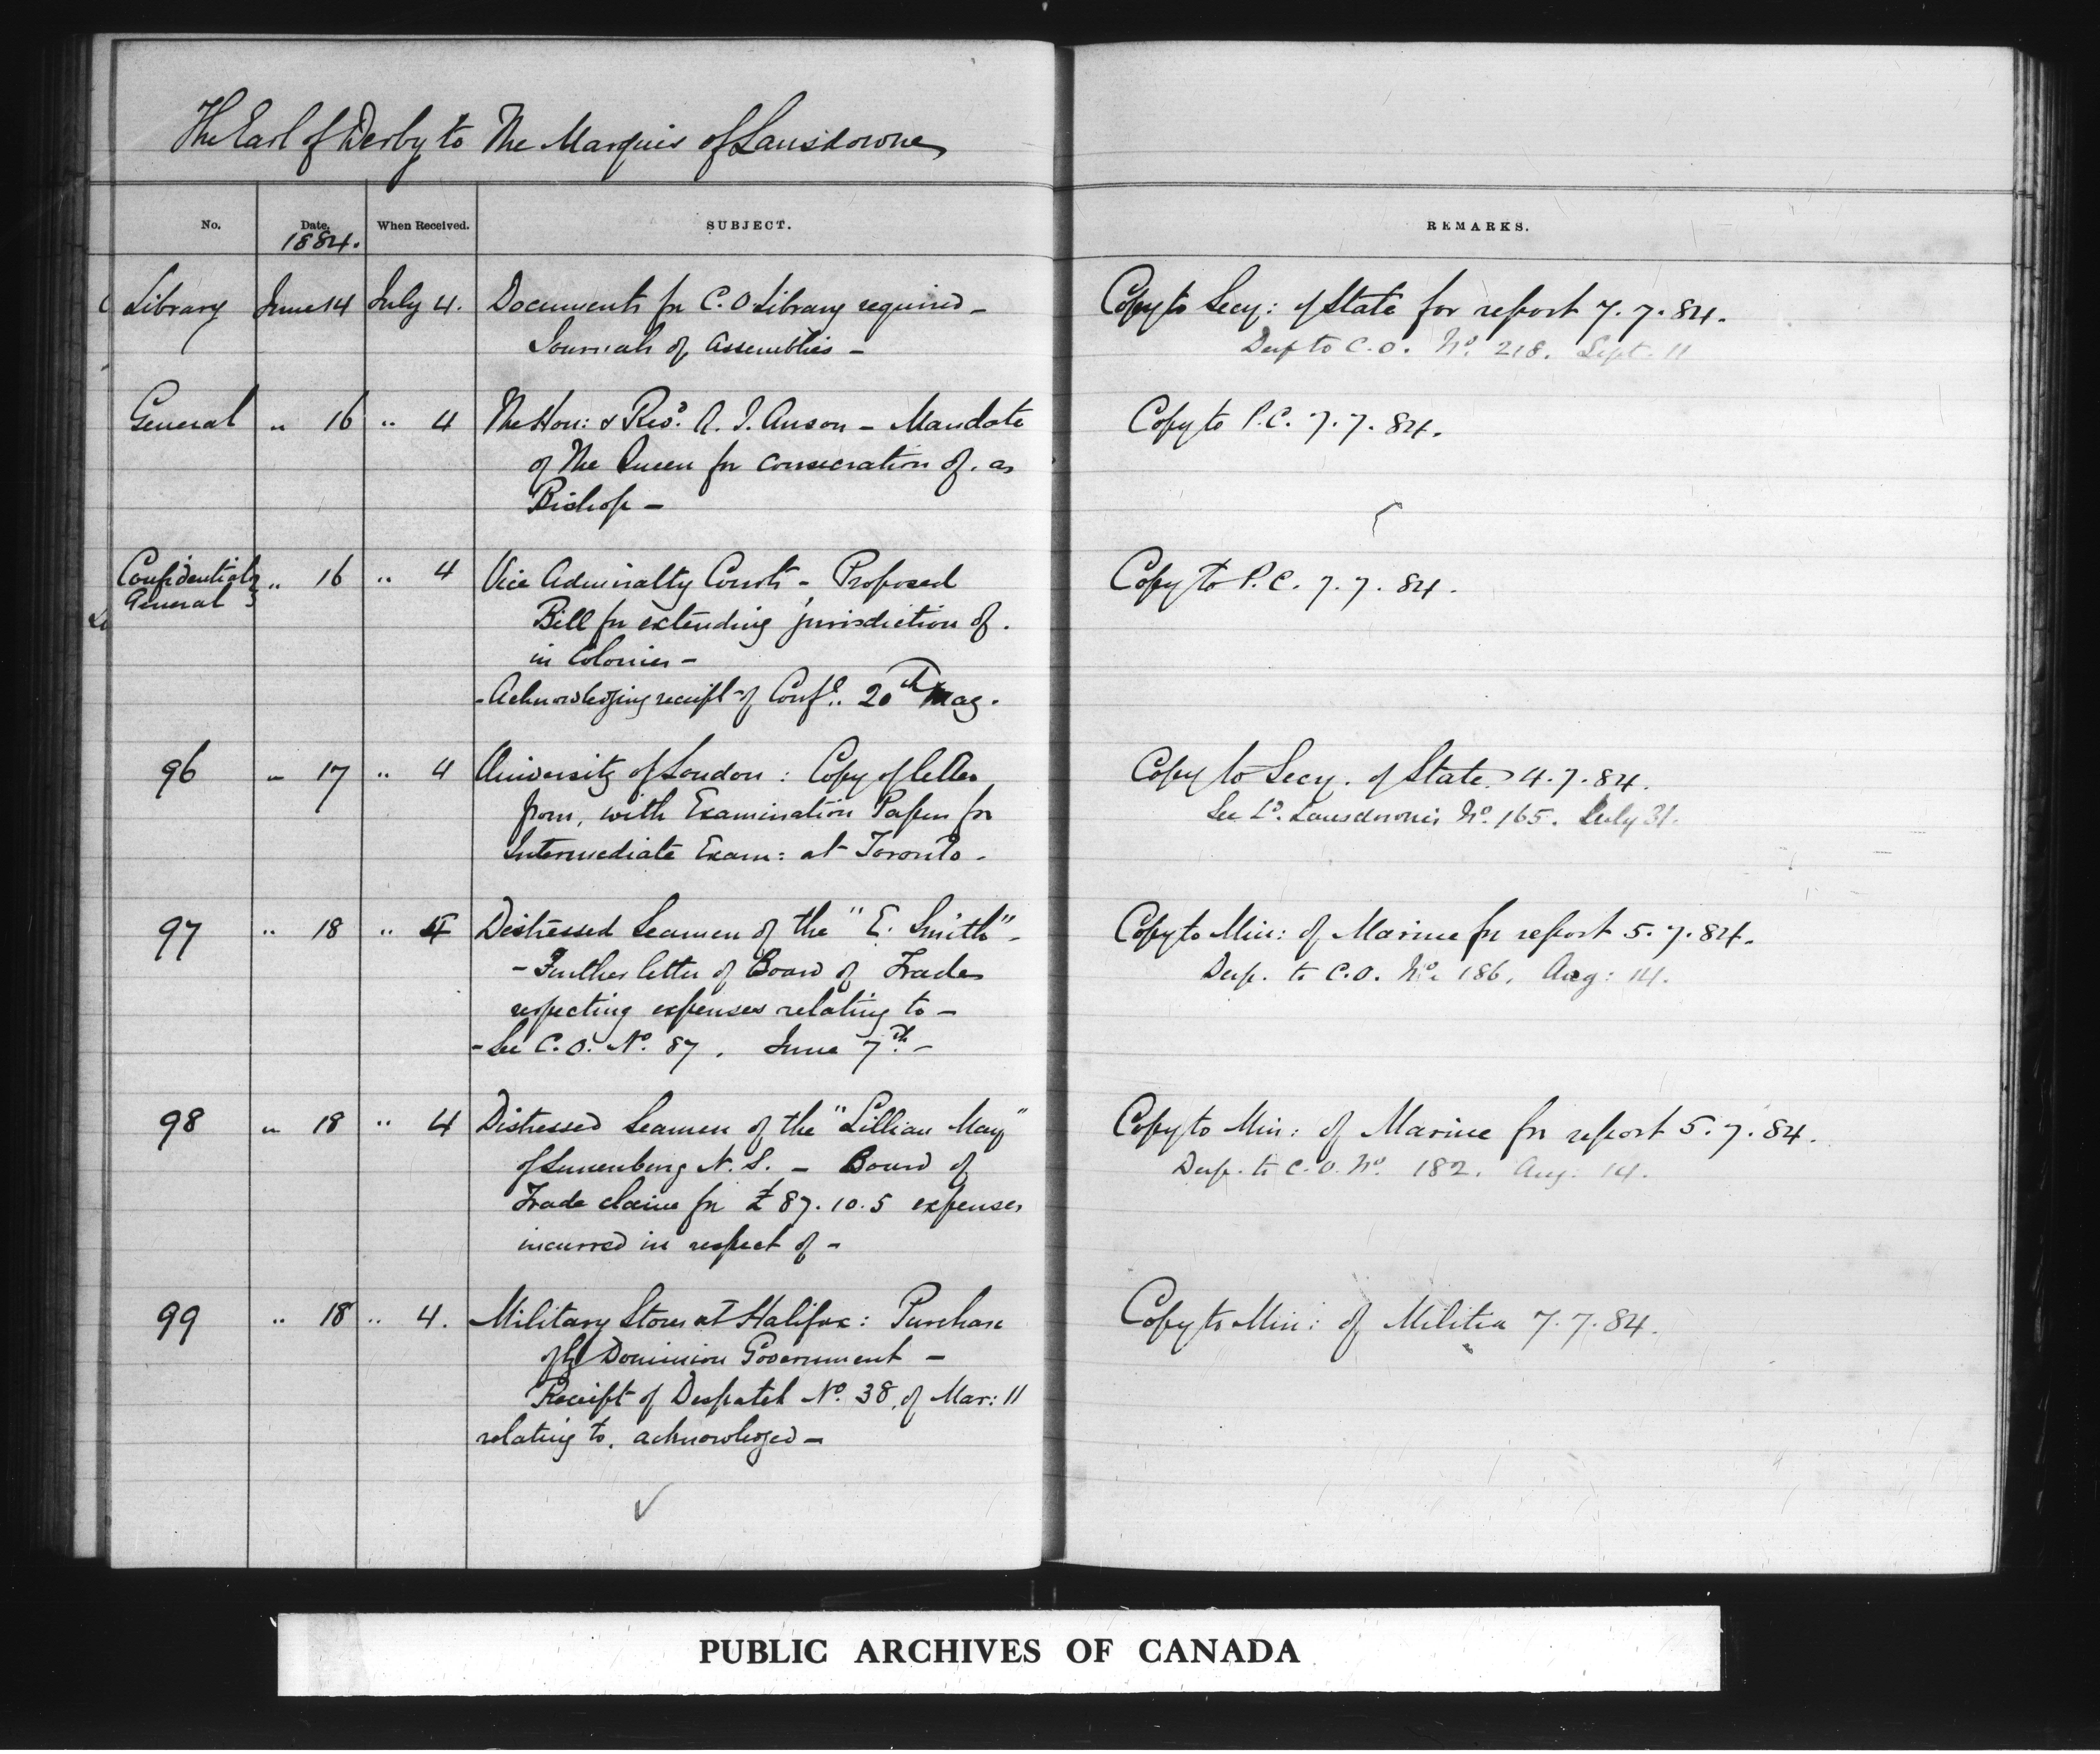 The Earl of Derby to The Marquis of Lansdowne
No. Date. When Received. SUBJECT. REMARKS.
1884.
Library June 14 July 4. Documents for C. O. Library required – Copy to Secy: of State for report 7. 7. 84.
Journals of Assemblies – Desp to C.O. No. 218. Sept. 11
General " 16 " 4 The Hon: & Revd. A. J. Anson – Mandate Copy to P.C. 7. 7. 84.
of The Queen for consecration of. as
Bishop –
Confidential " 16 " 4 Vice Admiralty Courts – Proposed Copy to P.C. 7. 7. 84.
General
Bill for extending jurisdiction of.
in Colonies –
- Acknowledging receipt of Confl. 20th May.
96 " 17 " 4 University of London : Copy of letter Copy to Secy. of State. 4. 7. 84.
from, with Examination Papers for See Ld. Lansdowne's No. 165. July 31.
Intermediate Exam: at Toronto –
97 " 18 " 4 Distressed Seamen of the "E. Smith" – Copy to Min: of Marine for report 5. 7. 84.
– Further letter of Board of Trade Desp. to C.O. No. 186. Aug: 14.
respecting expenses relating to –
– See C.O. No. 87. June 7th. –
98 " 18 " 4 Distressed Seamen of the "Lillian May" Copy to Min: of Marine for report 5. 7. 84.
of Lunenburg N. S. – Board of Desp. to C.O. No. 182. Aug. 14.
Trade claim for £87. 10. 5 expenses
incurred in respect of –
99 " 18 " 4. Military Stores at Halifax: Purchase Copy to Min: of Militia 7. 7. 84.
of by Dominion Government –
Receipt of Despatch No. 38, of Mar: 11
relating to, acknowledged –
PUBLIC ARCHIVES OF CANADA